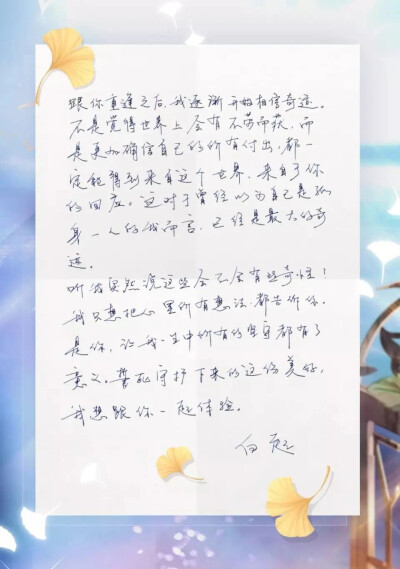 跟你重逢之后,我逐渐开始相信奇迹。
不是觉得世界上会有不劳而获,而
是更加确信自己的所有付出,都一
定能得到来自这个世界、来自了你
的回应。这对于曾经以为自己是孤
身一人的我而言,已经是最大的奇
迹。
听我突然说这些会不会有些奇怪!
我只想把心里所有想法都告诉你。
是你,让我一生中所有的宝贵都有了
意义。誓死守护下来的这份美好,
我想跟你一起体验。
白起